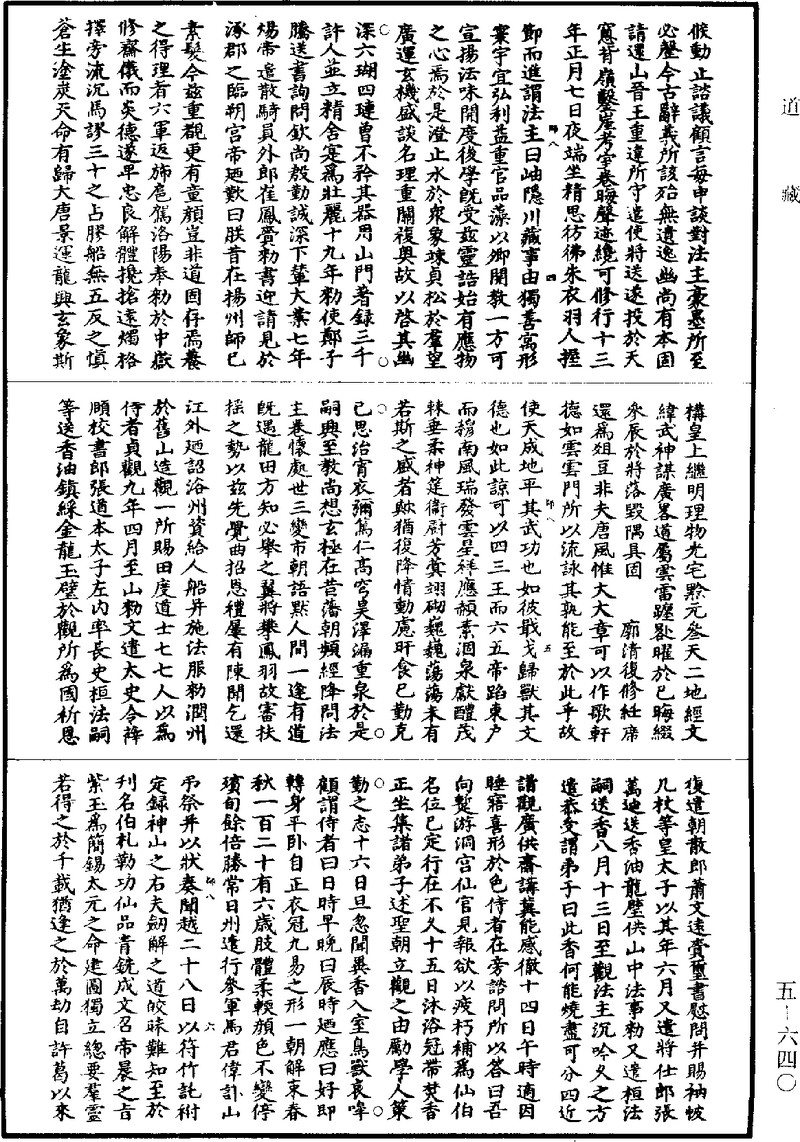 道藏
候動止諮議顧言每申談對法主豪墨所至
必罄今古辭義所該殆無遺逸幽尚有本固
請還山晉王重違所守遣使將送遂投於天
窻苷嶺繫崖考室養晦聲迹纔可修行十三
年正月七日夜端坐精思彷彿朱衣羽人握
節而進謂法主曰岫隱川藏事由獨善寓形
寰宇宜弘利益重官品藻以卿開教一方可
宣揚法味開度後學旣受兹靈誥始有應物
之心焉於是澄止水於衆象竦貞松於羣望
廣運玄機盛談名理重關復奧故以啓其幽
深六瑚四璉曾不矜其器用山門著錄三千
許人並立精舍寔爲壯麗十九年勑使鄭子
騰送書詢問欽尚殷勤誠深下輦大業七年
煬帝遣散騎員外郎崔鳳賫勑書迎請見於
涿郡之臨朔宮帝廼歎曰朕昔在揚州師已
素髮今兹重覩更有童顔豈非道固存焉養
之得理者六軍返斾扈駕洛陽奉勑於中嶽
修齋儀而炎德遂早忠良解體攙搶遠燭格
擇旁流沉馬謬三十之占膠船無五反之慎
蒼生塗炭天命有歸大唐景運龍興玄象斯
構皇上繼明理物光宅黔元叅天二地經文
緯武神謀廣畧道屬雲雷躔曜於已晦綴
參辰於將落毀隅具固 廓清復修絍席
還爲俎豆非夫唐風惟大大章可以作歌軒
德如雲雲門所以流詠其孰能至於此乎故
使天成地平其武功也如彼戢戈歸獸其文
德也如此諒可以四三王而六五帝蹈東戶
而揜南風瑞發雲星祥應赬素涸泉獻醴茂
棘垂柔神筵衛廚芳蓂翊砌巍巍蕩蕩未有
若斯之盛者歟猶復降情動慮旰食已勤克
已思治宵衣彌篤仁高穹昊澤漏重泉於是
嗣興至教尚想玄極在昔藩朝頻經降問法
主卷懷處世三變市朝語默人間一逢有道
旣遇龍田方知必舉之翼將攀鳳羽故審扶
揺之勢以兹先覺曲招恩禮屢有陳聞乞還
江外廼詔洺州資給人船幷施法服勑潤州
於舊山造觀一所賜田度道士七七人以爲
侍者貞觀九年四月至山勑文遣太史令薛
頤校書郎張道本太子左內率長史桓法嗣
等送香油鎮綵金龍玉璧於觀所爲國祈恩
復遣朝散郎蕭文遠賫璽書慰問幷賜衲帔
几杖等皇太子以其年六月又遣將仕郎張
萬迪送香油龍壁供山中法事勑又遣桓法
嗣送香八月十三日至觀法主沉吟久之方
遣恭受謂弟子曰此香何能燒盡可分四近
諸觀廣供齋講兾能感徹十四日午時適因
睡寤喜形於色侍者在旁諮問所以答曰吾
向蹔游洞宮仙官見報欲以疲朽補爲仙伯
名位已定行在不久十五日沐浴冠帶焚香
正坐集諸弟子述聖朝立觀之由勵學人策
勤之志十六日旦忽聞異香入室鳥獸哀嘷
顧謂侍者曰日時早晚曰辰時廼應曰好即
轉身平卧自正衣冠九易之形一朝解束春
秋一百二十有六歲肢體柔輭顔色不變停
殯旬餘倍勝常日州遣行參軍馬君偉訃山
弔祭幷以狀奏聞越二十八日以符竹託祔
定錄神山之右夫劒解之道皎昧難知至於
刊名伯札勒功仙品青銑成文召帝晨之吉
紫玉爲簡錫太元之命建國獨立總要羣靈
若得之於千載猶逢之於萬劫自許葛以來
五-六四〇